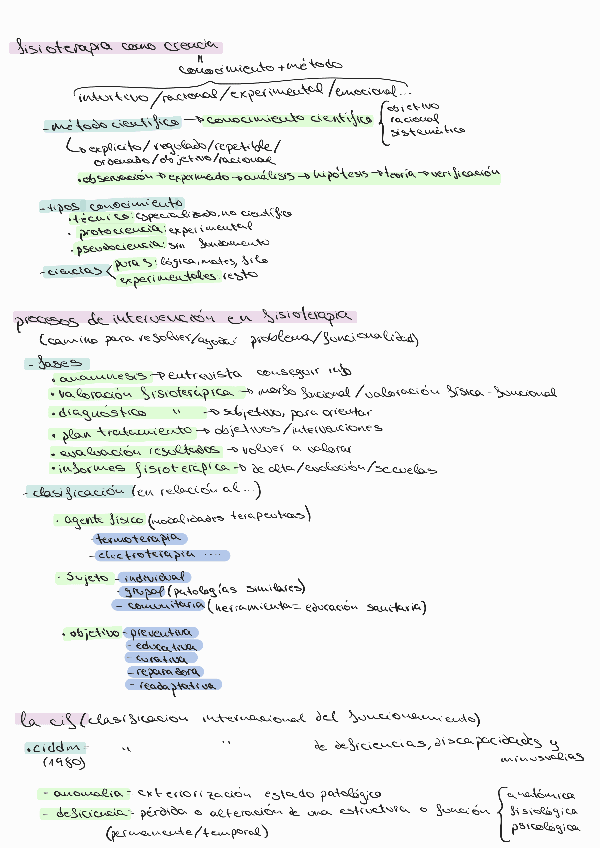 fisioterapia como ciencia
conocimiento + método
intuitivo/racional/experimental/emocional...
- método científico → conocimiento científico { objetivo
racional
sistemático
↳ explícito/regulado/repetible/
ordenado/objetivo/racional
• observación → experimento → análisis → hipótesis → teoría → verificación
- tipos conocimiento
• técnico: especializado, no científico
• protociencia: experimental
• pseudociencia: sin fundamento
- ciencias < puras: lógica, mates, filo
experimentales: resto
procesos de intervención en fisioterapia
(camino para resolver/ayudar problema/funcionalidad)
- fases
• anamnesis → entrevista conseguir info
• valoración fisioterápica → morfo funcional/valoración física-funcional
• diagnóstico " → subjetivo, para orientar
• plan tratamiento → objetivos/intervenciones
• evaluación resultados → volver a valorar
• informes fisioterápica → de alta/evolución/secuelas
- clasificación (en relación al...)
• agente físico (modalidades terapeuticas)
- termoterapia
- electroterapia ....
• sujeto - individual
- grupal (patologías similares)
- comunitaria (herramienta = educación sanitaria)
• objetivo - preventiva
- educativa
- curativa
- reparadora
- readaptativa
la cif (clasificacion internacional del funcionamiento)
• ciddm - " " de deficiencias, discapacidades y
(1980) minusvalias
- anomalia - exteriorización estado patológico
- deficiencia - pérdida o alteración de una estructura o función { anatómica
fisiológica
psicológica
(permanente/temporal)